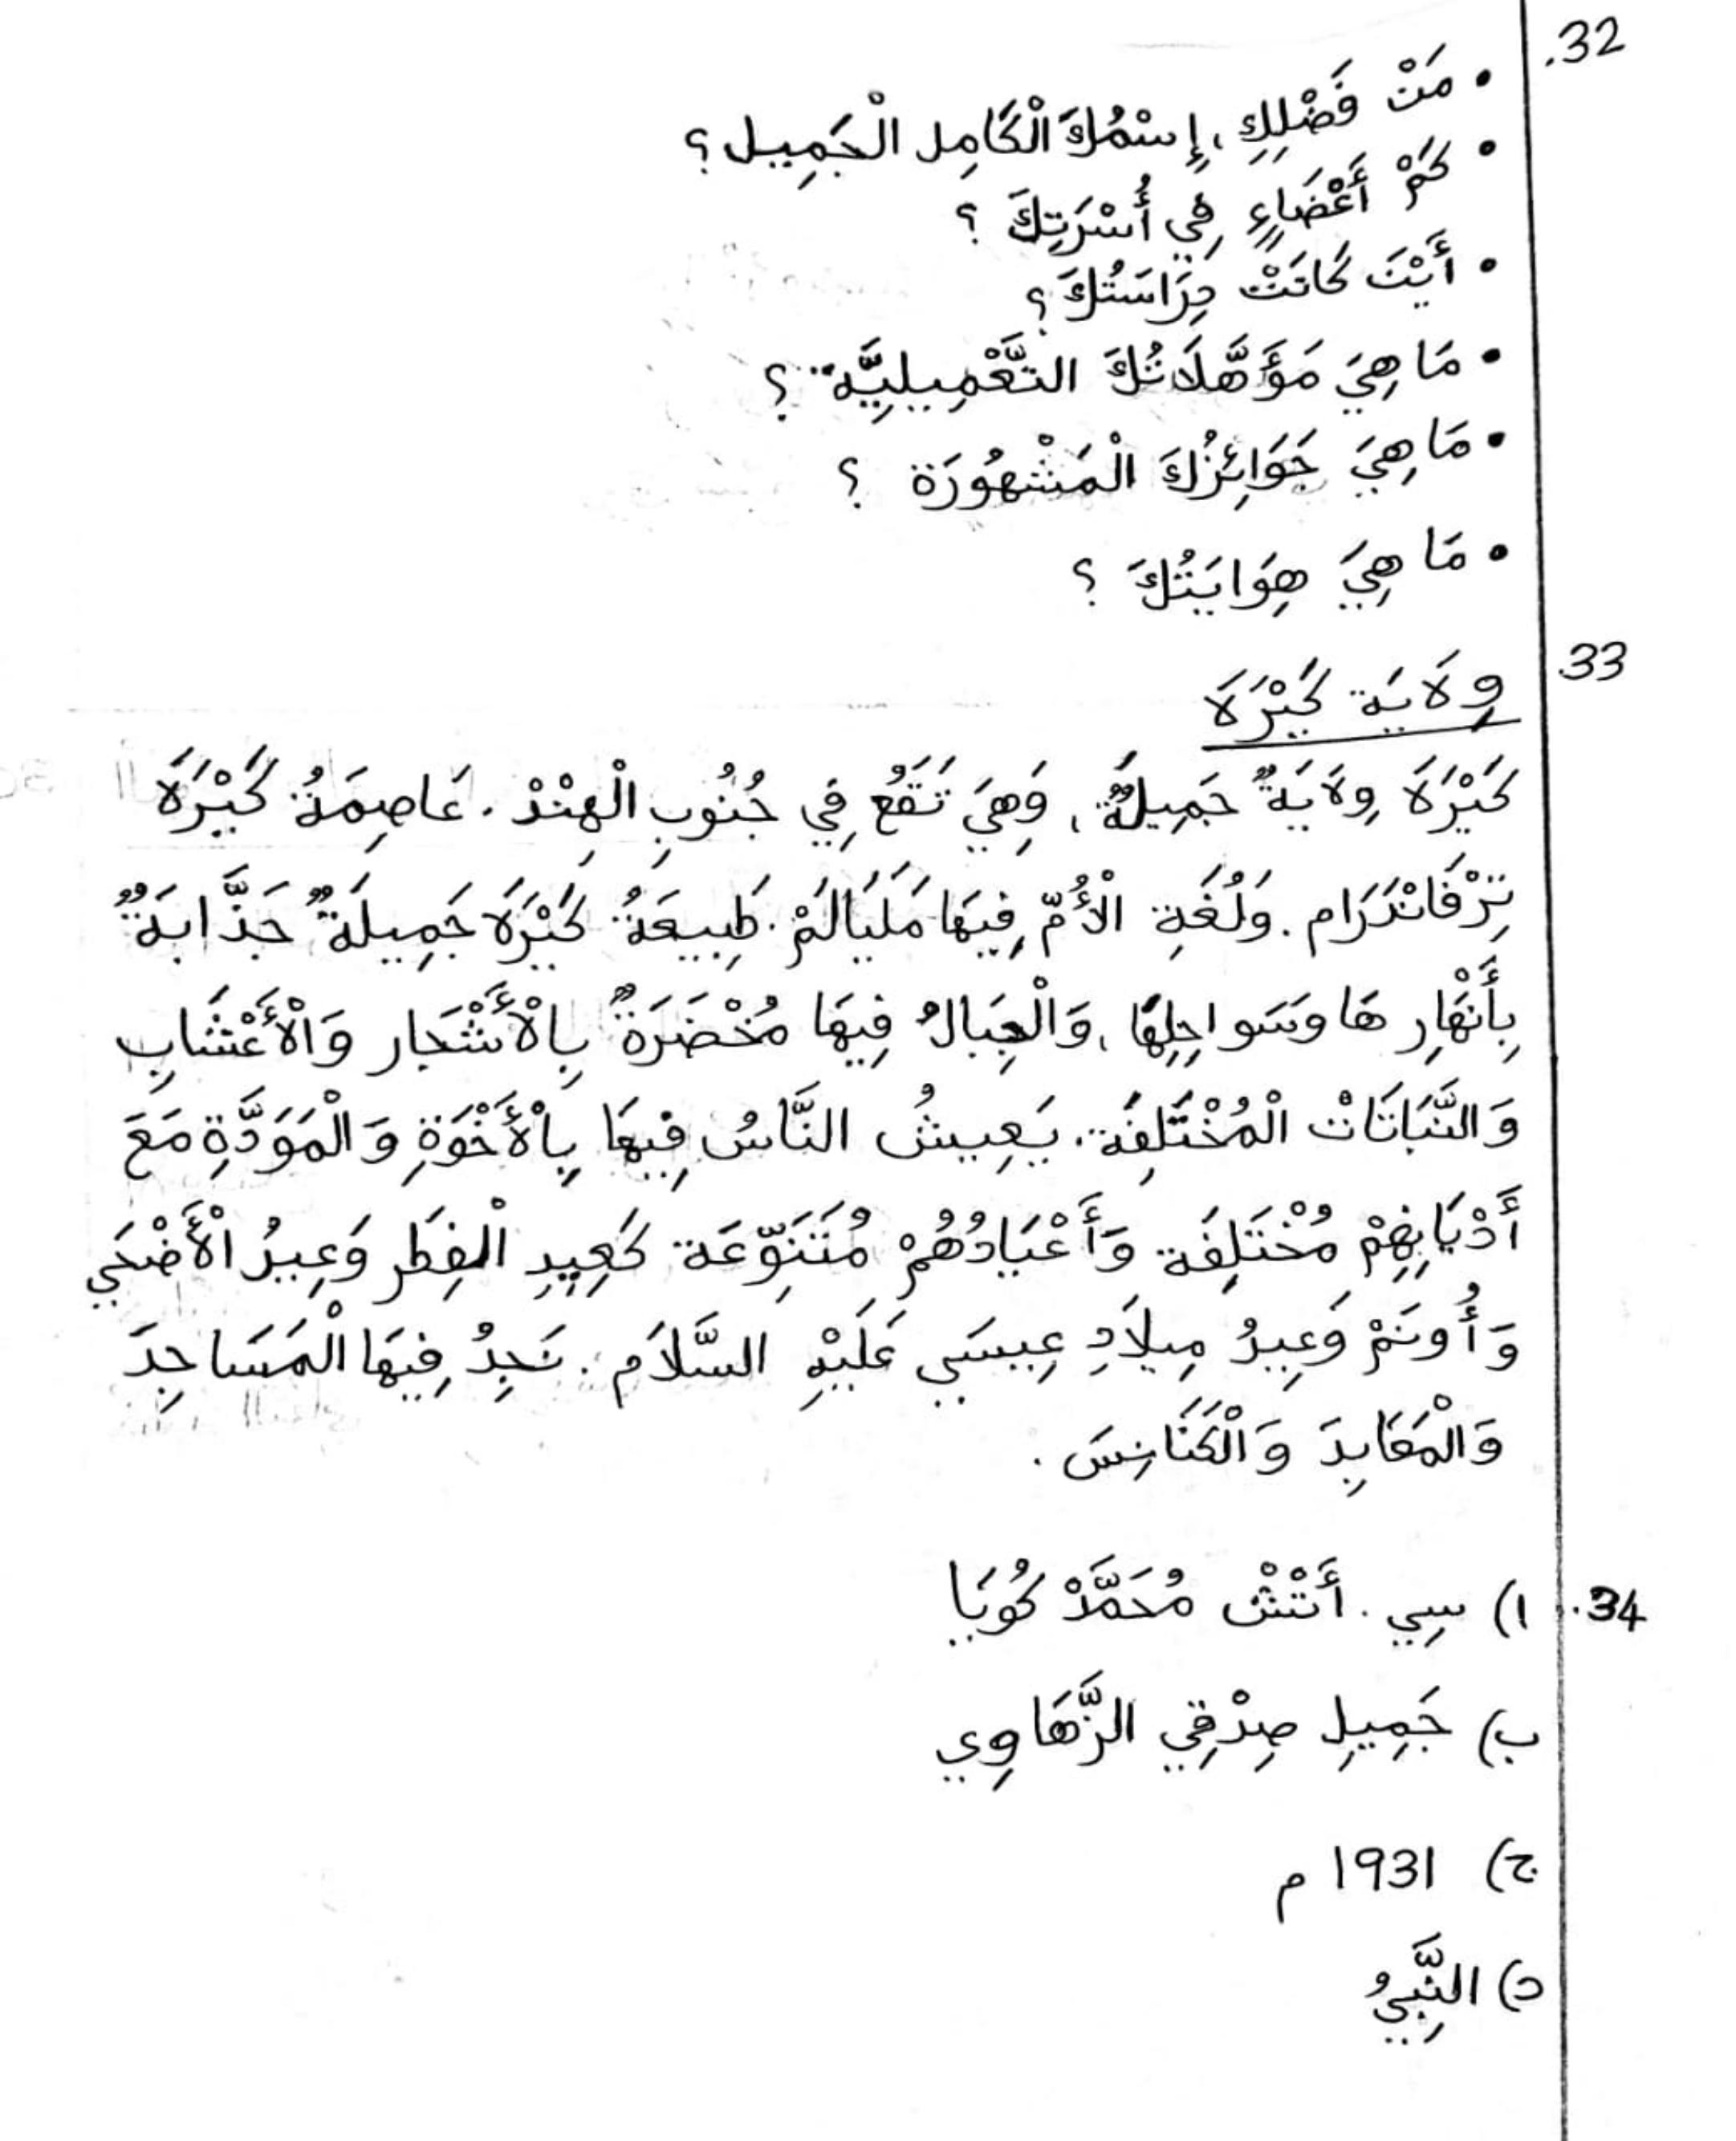 32.
• مَنْ فَضْلِكِ، إِسْمُكَ الْكَامِل الْجَمِيل؟
• كَمْ أَعْضَاءٍ فِي أُسْرَتِكَ ؟
• أَيْنَ كَانَتْ دِرَاسَتُكَ؟
• مَا هِيَ مَؤَهَّلَاتُكَ التَّعْمِيلِيَّة ؟
• مَا هِيَ جَوَائِزُكَ الْمَشْهُورَة ؟
• مَا هِيَ هِوَايَتُكَ ؟
33.
وِلَايَة كَيْرَلَا
كَيْرَلَا وِلَايَةٌ جَمِيلَةٌ، وَهِيَ تَقَعُ فِي جُنُوبِ الْهِنْدْ. عَاصِمَةُ كَيْرَلَا
تِرْفَانْدَرَام. وَلُغَةِ الْأُمّ فِيهَا مَلَيَالَمْ. طَبِيعَةُ كَيْرَلَا جَمِيلَةٌ جَذَّابَةٌ
بِأَنْهَارِهَا وَسَوَاحِلِهَا، وَالْجِبَالُ فِيهَا مُخْضَرَةٌ بِالْأَشْجَار وَالْأَعْشَابِ
وَالنَّبَاتَاتْ الْمُخْتَلِفَة. يَعِيشُ النَّاسُ فِيهَا بِالْأَخْوَةِ وَالْمَوَدَّةِ مَعَ
أَدْيَانِهِمْ مُخْتَلِفَة وَأَعْيَادُهُمْ مُتَنَوِّعَة كَعِيدِ الْفِطَر وَعِيدُ الْأَضْحَي
وَأُونَمْ وَعِيدُ مِيلَادِ عِيسَي عَلَيْهِ السَّلَام. نَجِدُ فِيهَا الْمَسَاجِدَ
وَالْمَعَابِدَ وَالْكَنَائِسَ.
34. ا) سِي. أَتْشْ مُحَمَّدْ كُويَا
ب) جَمِيلِ صِدْقِي الزَّهَاوِي
ج) 1931 م
د) النَّبِيُ